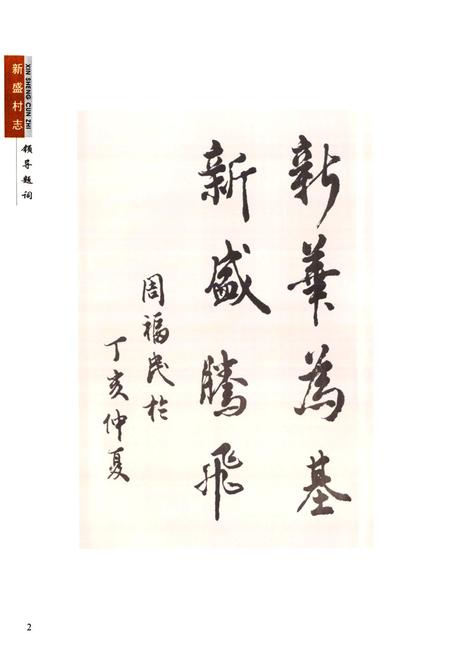 新盛村志
XIN SHENG CUN ZHI
领导题词
新華為基
新盛騰飛
周福民於
丁亥仲夏
2